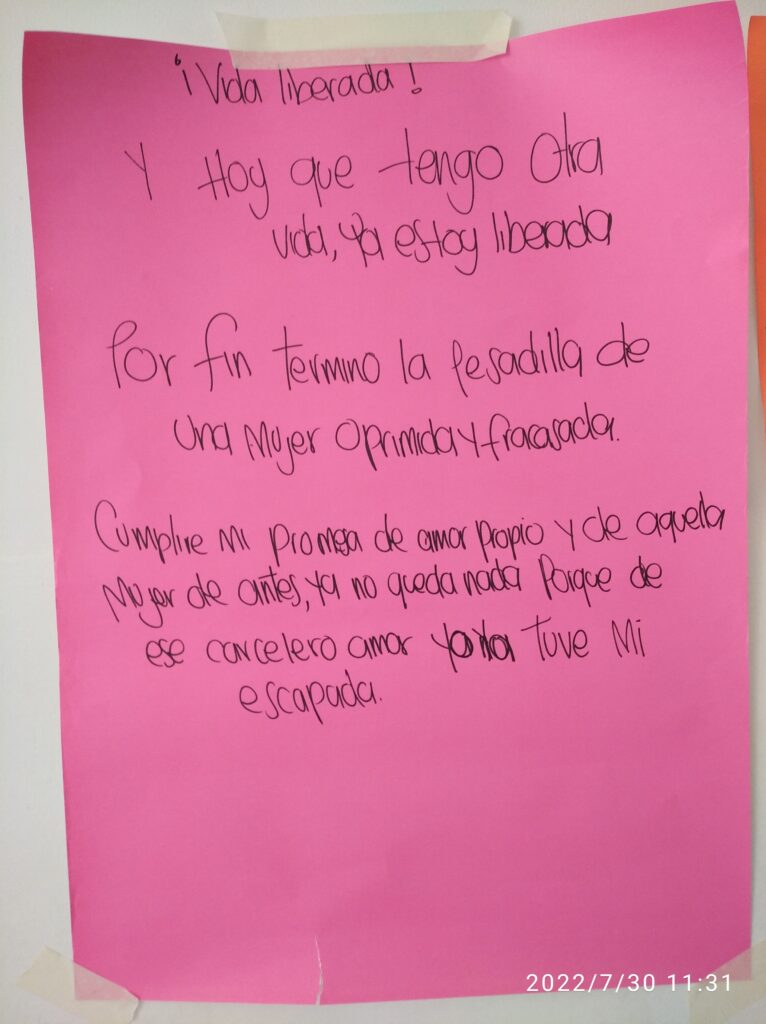 ¡Vida liberada!
Y Hoy que tengo otra
vida, ya estoy liberada
Por fin termino la pesadilla de
una Mujer oprimida y fracasada.
Cumplire mi promesa de amor propio y de aquella
Mujer de antes, ya no queda nada Porque de
ese carcelero amor yo ya Tuve Mi
escapada.
2022/7/30 11:31